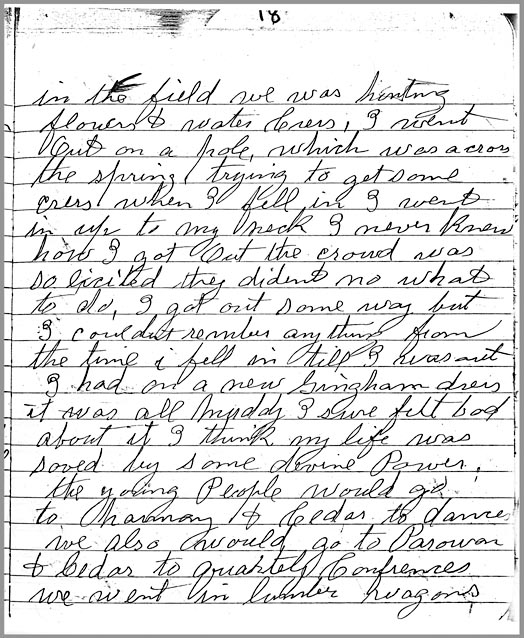 18
in the field we was hunting
flowers & water Cress, I went
Out on a pole, which was across
the spring trying to get some
cress when I fell in I went
in up to my neck I never knew
how I got Out the croud was
so Exited they dident no what
to do, I got out some way but
I couldnt rember any thing from
the time i fell in till I was out
I had on a new Gingham dress
it was all Muddy I sure felt bad
about it I think my life was
saved by some devine Power.
the young People would go
to Harmony & Cedar to dance
we also would go to Parowan
& Cedar to quartely Confrences
we went in lumber wagons,